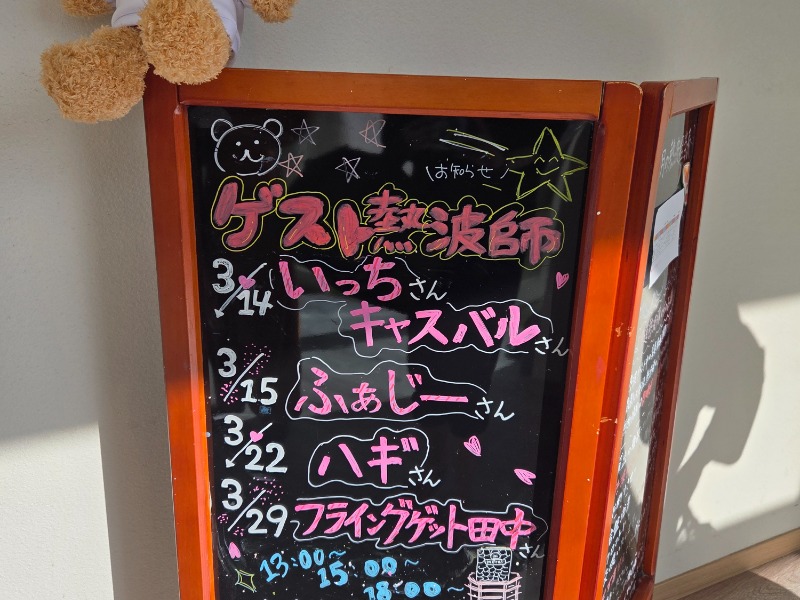 お知らせ
ゲスト熱波師
3/14 いっちさん
キャスバルさん
3/15 ふぁじーさん
3/22 ハギさん
3/29 フライングゲット田中さん
13:00~
15:00~
18:00~